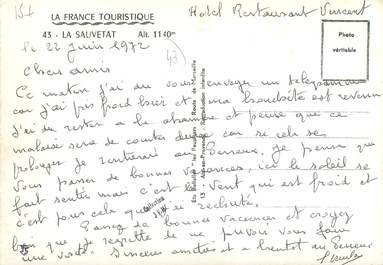 LA FRANCE TOURISTIQUE
43 - LA SAUVETAT Alt. 1140m
Hotel Restaurant Vincent
Photo
véritable
le 22 juin 1972
Chers amis
Ce matin j'ai du vous envoyer un telegramme
car j'ai pris froid hier et ma bronchite est revenue
j'ai du rester a la chambre et pense que ce
malaise sera de courte durée car si cela se
prolonge je rentrerai au Perreux, je pense que
vous passez de bonnes vacances, ici le soleil se
fait sentir mais c'est le vent qui est froid et
c'est pour cela que j'ai rechuté.
Passez de bonnes vacances et croyez
bien que je regrette de ne pouvoir vous faire
une visite. Sincères amitiés et a bientot au Perreux